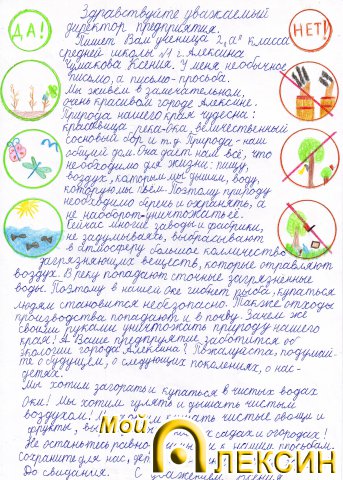 Здравствуйте уважаемый
директор предприятия.
ДА!
НЕТ!
Пишет Вам ученица 2 "а" класса
средней школы №4 г. Алексина
Чумакова Ксения. У меня необычное
письмо, а письмо-просьба.
Мы живём в замечательном,
очень красивом городе Алексине.
Природа нашего края чудесна:
красавица река-Ока, величественный
сосновый бор и т.д. Природа-наш
общий дом. Она даёт нам всё, что
необходимо для жизни: пищу,
воздух, которым мы дышим, воду,
которую мы пьем. Поэтому природу
необходимо беречь и охранять, а
не наоборот-уничтожать её.
Сейчас многие заводы и фабрики,
не задумываясь, выбрасывают
в атмосферу большое количество
загрязняющих веществ, которые отравляют
воздух. В реку попадают сточные загрязнённые
воды. Поэтому в нашей Оке гибнет рыба, купаться
людям становится небезопасно. Также отходы
производства попадают и в почву. Зачем же
своими руками уничтожать природу нашего
края! А Ваше предприятие заботится об
экологии города Алексина? Пожалуйста, подумай-
те о будущем, о следующих поколениях, о нас-
детях.
Мы хотим загорать и купаться в чистых водах
Оки! Мы хотим гулять и дышать чистым
воздухом! чистые овощи и
фрукты, садах и огородах!
Не останьтесь нашим просьбам.
Сохраните для нас,
До свидания. С уважением Ксения
Мой Алексин